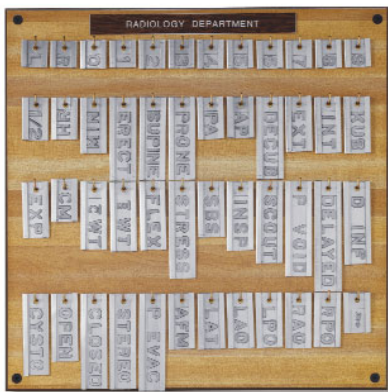 RADIOLOGY DEPARTMENT
L R 0 1 2 3 4 5 6 7 8 9
1/2 HH MIN ERECT SUPINE PRONE PA AP DECUB EXT INT KUB
EXP CM ICWT IWT FLEX STRESS SBS INSP SCOUT P VOID DELAYED D INF
CYSTO OPEN CLOSED STEREO P EVAC AFM LAT LAO LPO RAO RPO